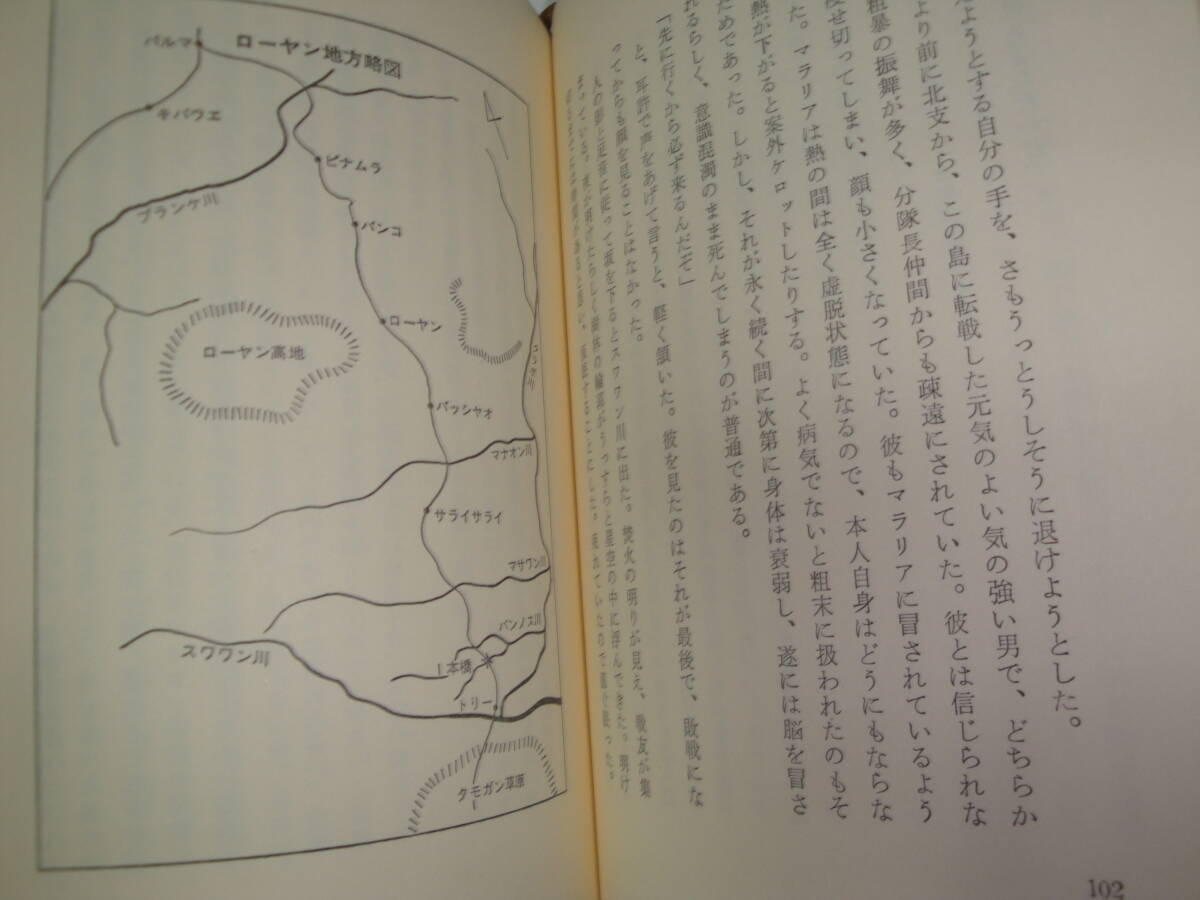 だようとする自分の手を、さもうっとうしそうに退けようとした。
より前に北支から、この島に転戦した元気のよい気の強い男で、どちらか
粗暴の振舞が多く、分隊長仲間からも疎遠にされていた。彼とは信じられな
せ切ってしまい、顔も小さくなっていた。彼もマラリアに冒されているよう
た。マラリアは熱の間は全く虚脱状態になるので、本人自身はどうにもならな
熱が下がると案外ケロットしたりする。よく病気でないと粗末に扱われたのもそ
ためであった。しかし、それが永く続く間に次第に身体は衰弱し、遂には脳を冒さ
れるらしく、意識混濁のまま死んでしまうのが普通である。
「先に行くから必ず来るんだぞ」
と、耳許で声をあげて言うと、軽く頷いた。彼を見たのはそれが最後で、敗戦にな
ってからも顔を見ることはなかった。
人の影と足音に従って坂を下るとスワワン川に出た。焚火の明りが見え、戦友が集
まっている。夜が明けたらしく樹林の輪郭がうっすらと星空の中に浮んできた。明け
102
ローヤン地方略図
パルマ
キバウエ
ピナムラ
プランケ川
パンコ
ローヤン
ローヤン高地
パッシヤオ
マナオン川
サライサライ
マサワン川
パンノス川
一本橋
スワワン川
トリー
タモガン草原